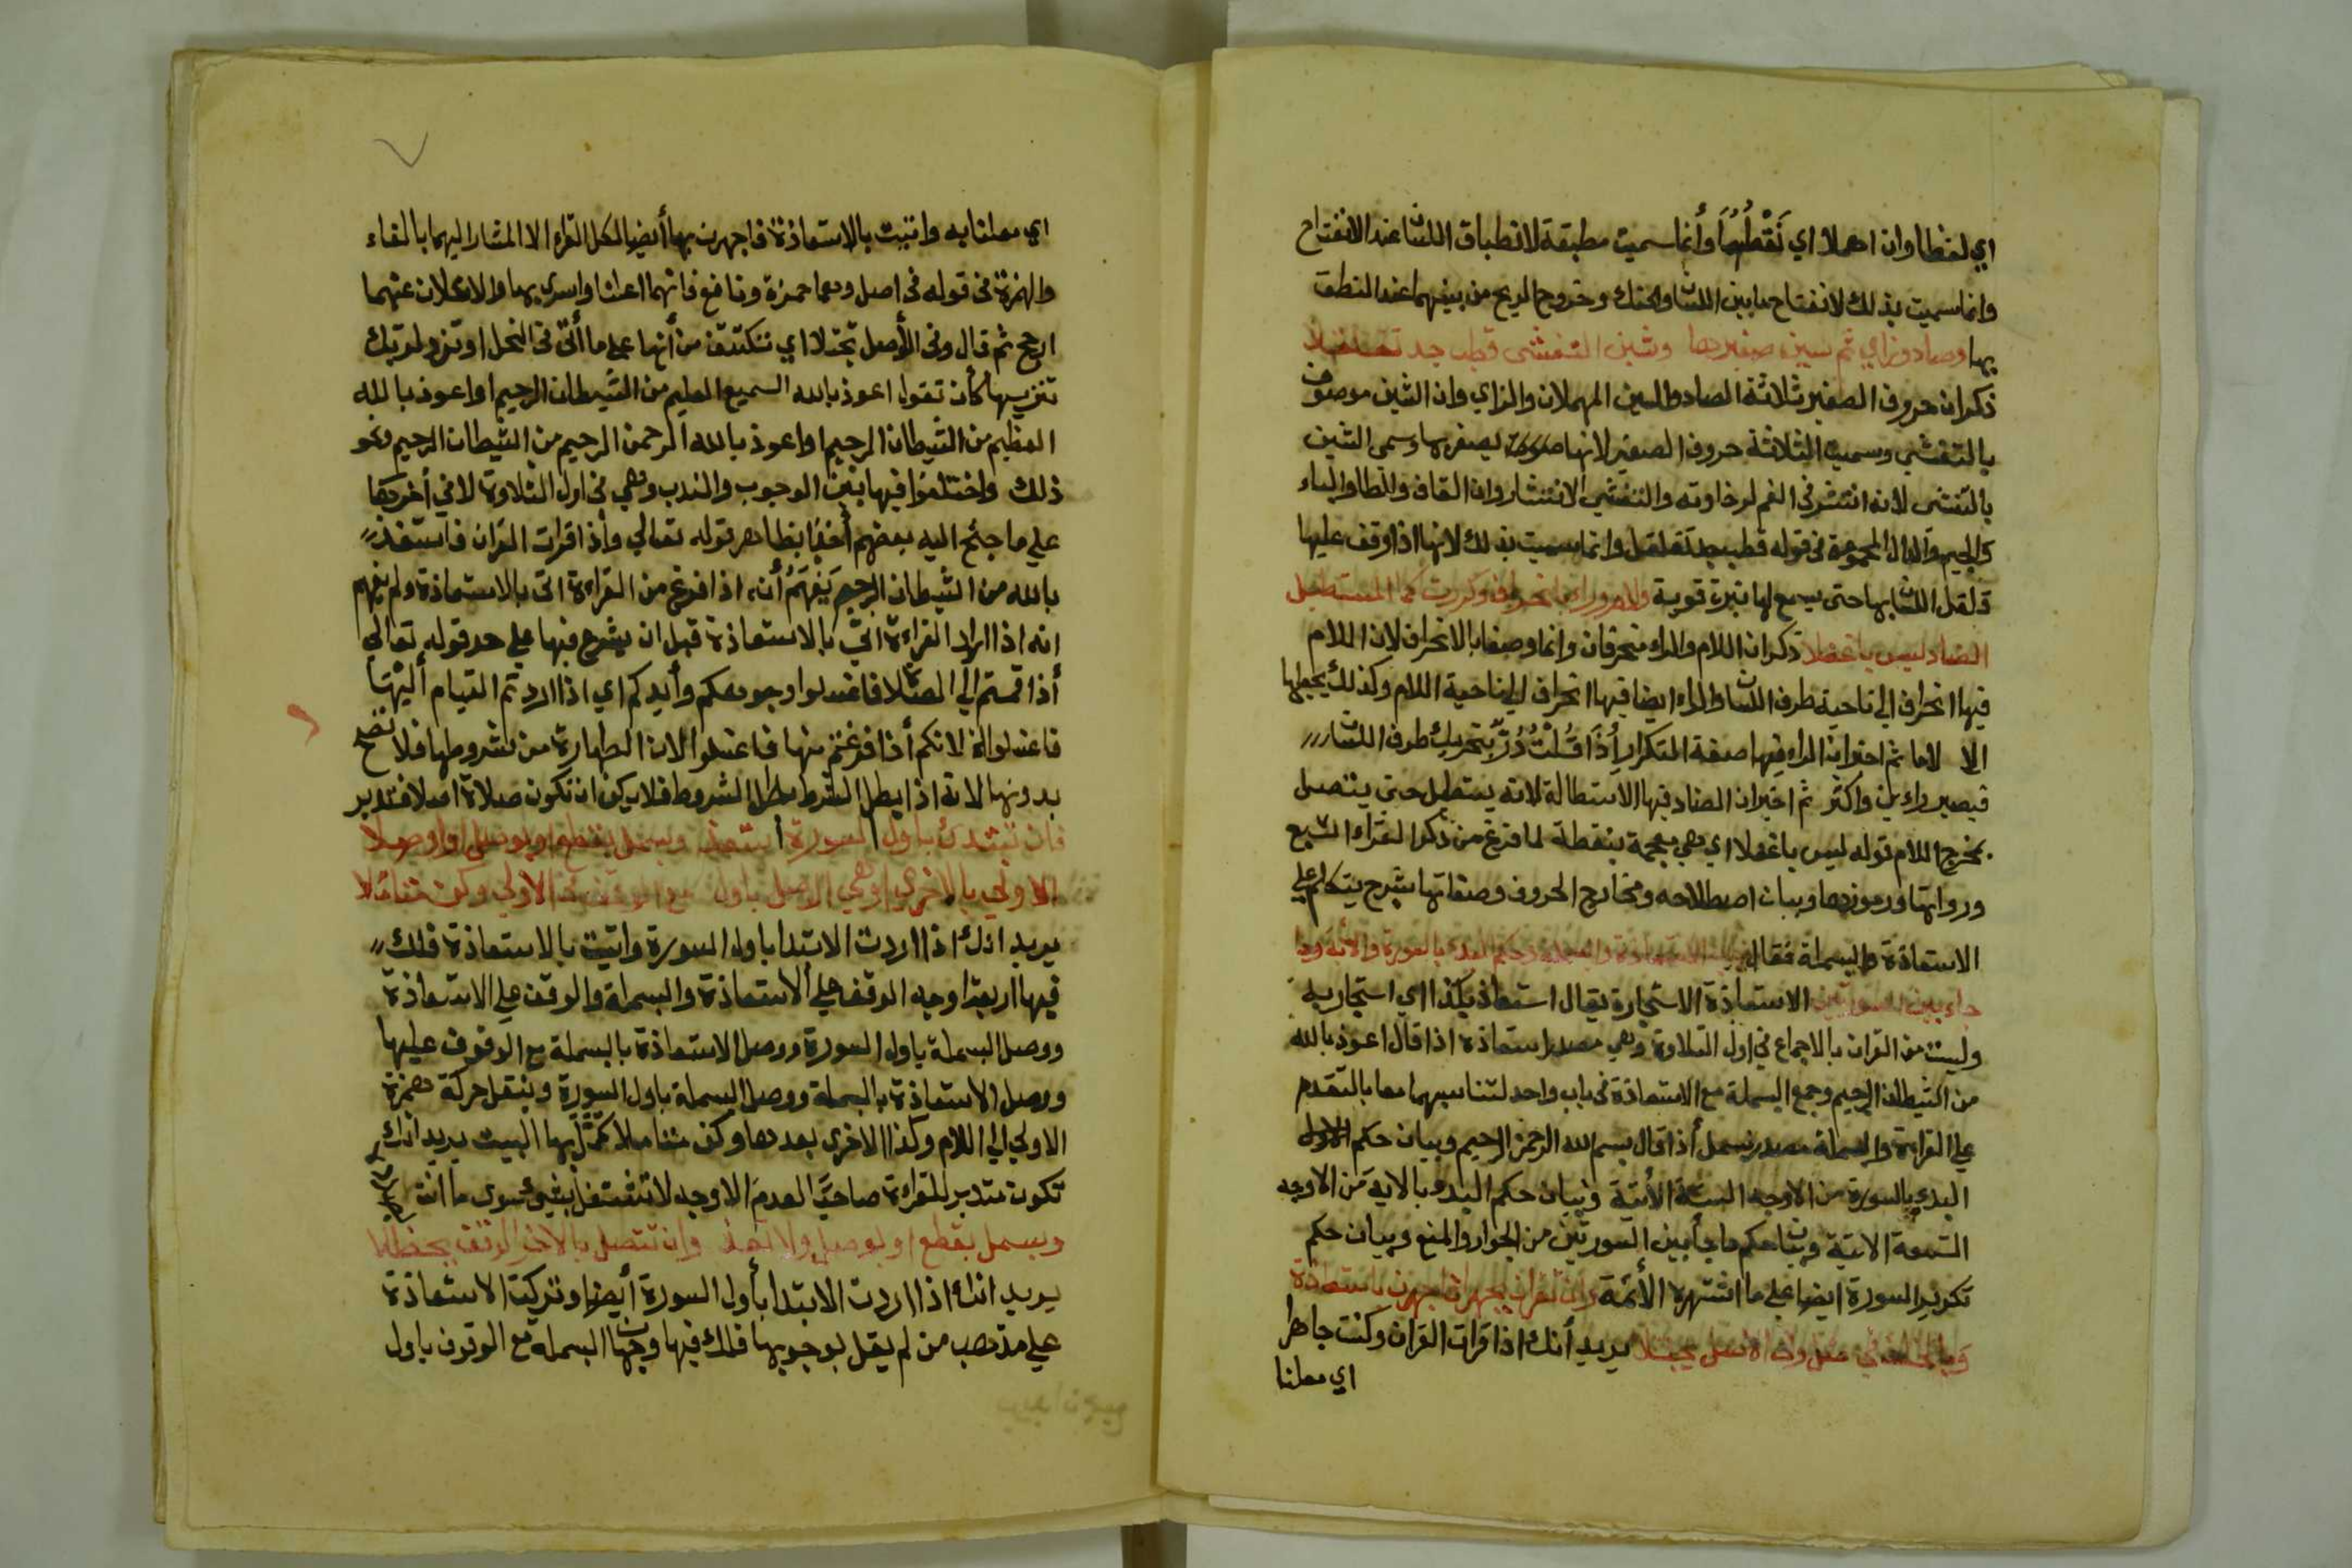 اي لفظا وان اهملا اي نَقْطُهَا وأنما سميت مطبقة لانطباق اللسان عند الانفتاح
وانما سميت بذلك لانفتاح مابين اللسان والحنك وخروج الريح من بينهما عند النطق
بها وصاد وزاي ثم سين صفيرها وشين التفشى قطب جد تقلقلا
ذكر ان حروف الصفير ثلاثة الصاد والسين المهملان والزاي وان الشين موصوف
بالتفشي وسميت الثلاثة حروف الصفير لانها صوت يصفر بها وسمى الشين
بالتفشى لانه انتشر في الفم لرخاوته والتفشي الانتشار وان القاف والطا والباء
والجيم والدال المجموعة في قوله قطب جد تقلقل وانما سميت بذلك لانها اذا وقف عليها
قلقل اللسان بها حتى يسمع لها نبرة قوية وكررت كما المستطيل
الضاد ليس باغفلا ذكر ان اللام والراء منحرفان وانما وصفا بالانحراف لان اللام
فيها انحراف الي ناحية طرف اللسان والراء ايضا فيها انحراف الي ناحية اللام وكذلك يجعلها
الا لاما ثم اخبر ان الراء فيها صفة التكرار إِذَا قُلْتُ دُرّ بتحريك طرف اللسان
فيصير راءين واكثر ثم اخبر ان الضاد فيها الاستطالة لانه يستطيل حتى يتصل
بمخرج اللام قوله ليس باغفلا اي هي معجمة بنقطة لما فرغ من ذكر القراء السبع
ورواتها ورموزها وبيان اصطلاحه ومخارج الحروف وصفاتها شرع يتكلم علي
الاستعاذة والبسملة فقال باب الاستعاذة والبسملة وحكم البدء بالسورة والآية وما
جاء بين السورتين الاستعاذة الاستجارة يقال استعاذ بكذا اي استجار به
وليست من القران بالاجماع في اول التلاوة وهي مصدر استعاذة اذا قال اعوذ بالله
من الشيطان الرجيم وجمع البسملة مع الاستعاذة في باب واحد لتناسبهما معا بالتقدم
علي القراءة والبسملة مصدر بسمل أذا قال بسم الله الرحمن الرحيم وبيان حكم
البدء بالسورة من الاوجه الستة الأتية وبيان حكم البدء بالاية من الاوجه
التسعة الاتية وبيان حكم ما جأ بين السورتين من الجواز والمنع وبيان حكم
تكرير السورة ايضا علي ما اشتهره الأئمة وان تقران جهرا فاجهرن باستعاذة
يريد أنك اذا قرات القران وكنت جاهرا
اي معلنا
اي معلنا به واتيت بالاستعاذة فاجهرن بها أيضا لكل القراء الا المشار اليهما بالفاء
والهمزة في قوله في اصل وهما حمزة ونافع فانهما اعلنا واسرى بها والاعلان عنهما
ارجح ثم قال وفي الأصل تجتلا اي تنكشف من أنها علي ما أتى في النحل او تزد لربك
تنزيها كأن تقول اعوذ بالله السميع العليم من الشيطان الرجيم او اعوذ بالله
العظيم من الشيطان الرجيم او اعوذ بالله الرحمن الرحيم من الشيطان الرجيم ونحو
ذلك واختلفوا فيها بين الوجوب والندب وهي في اول التلاوة لا في أخرها
علي ما جنح اليه بعضهم أخذا بظاهر قوله تعالي وأذا قرات القران فاستعذ
بالله من الشيطان الرجيم يَفْهَمُ أنه اذا فرغ من القراءة اتى بالاستعاذة ولم يفهم
انه اذا اراد القراءة اتىّ بالاستعاذة قبل ان يشرع فيها علي حد قوله تعالي
أذا قمتم الي الصلاة فاغسلوا وجوهكم وأيديكم اي اذا اردتم القيام أليها
فاغسلوا لا انكم أذا فرغتم منها فاغسلوا لان الطهارة من شروطها فلا تصح
بدونها لانه اذا بطل الشرط بطل المشروط فلا يمكن ان تكون صلاة اصلا فتدبر
فان تبتدئ باول السورة استعذ وبسمل بقطع او بوصل او اوصلا
الاولي بالاخرى او هي الاصل باول مع الوقف في الاولي وكن متأملا
يريد انك اذا اردت الابتدا باول السورة واتيت بالاستعاذة فلك
فيها اربعة اوجه الوقف علي ألاستعاذة والبسملة والوقف علي الاستعاذة
ووصل البسملة باول السورة ووصل الاستعاذة بالبسملة مع الوقوف عليها
ووصل الاستعاذة بالبسملة ووصل البسملة باول السورة وينقل حركة همزة
الاولي الي اللام وكذا الاخرى بعدها وكن متاملا كمّل بها البيت يريد انك
تكون متدبر للقراءة صاحيَّا لعدم الاوجه لا تشتغل بشيئ سوى ما انت
وبسمل بقطع او بوصل ولا تعذ وان تتصل بالاخر الوقف يحظلا
يريد انك اذا اردت الابتدا بأول السورة أيضا وتركت الاستعاذة
علي مذهب من لم يقل بوجوبها فلك فيها وجهان البسملة مع الوقوف باول